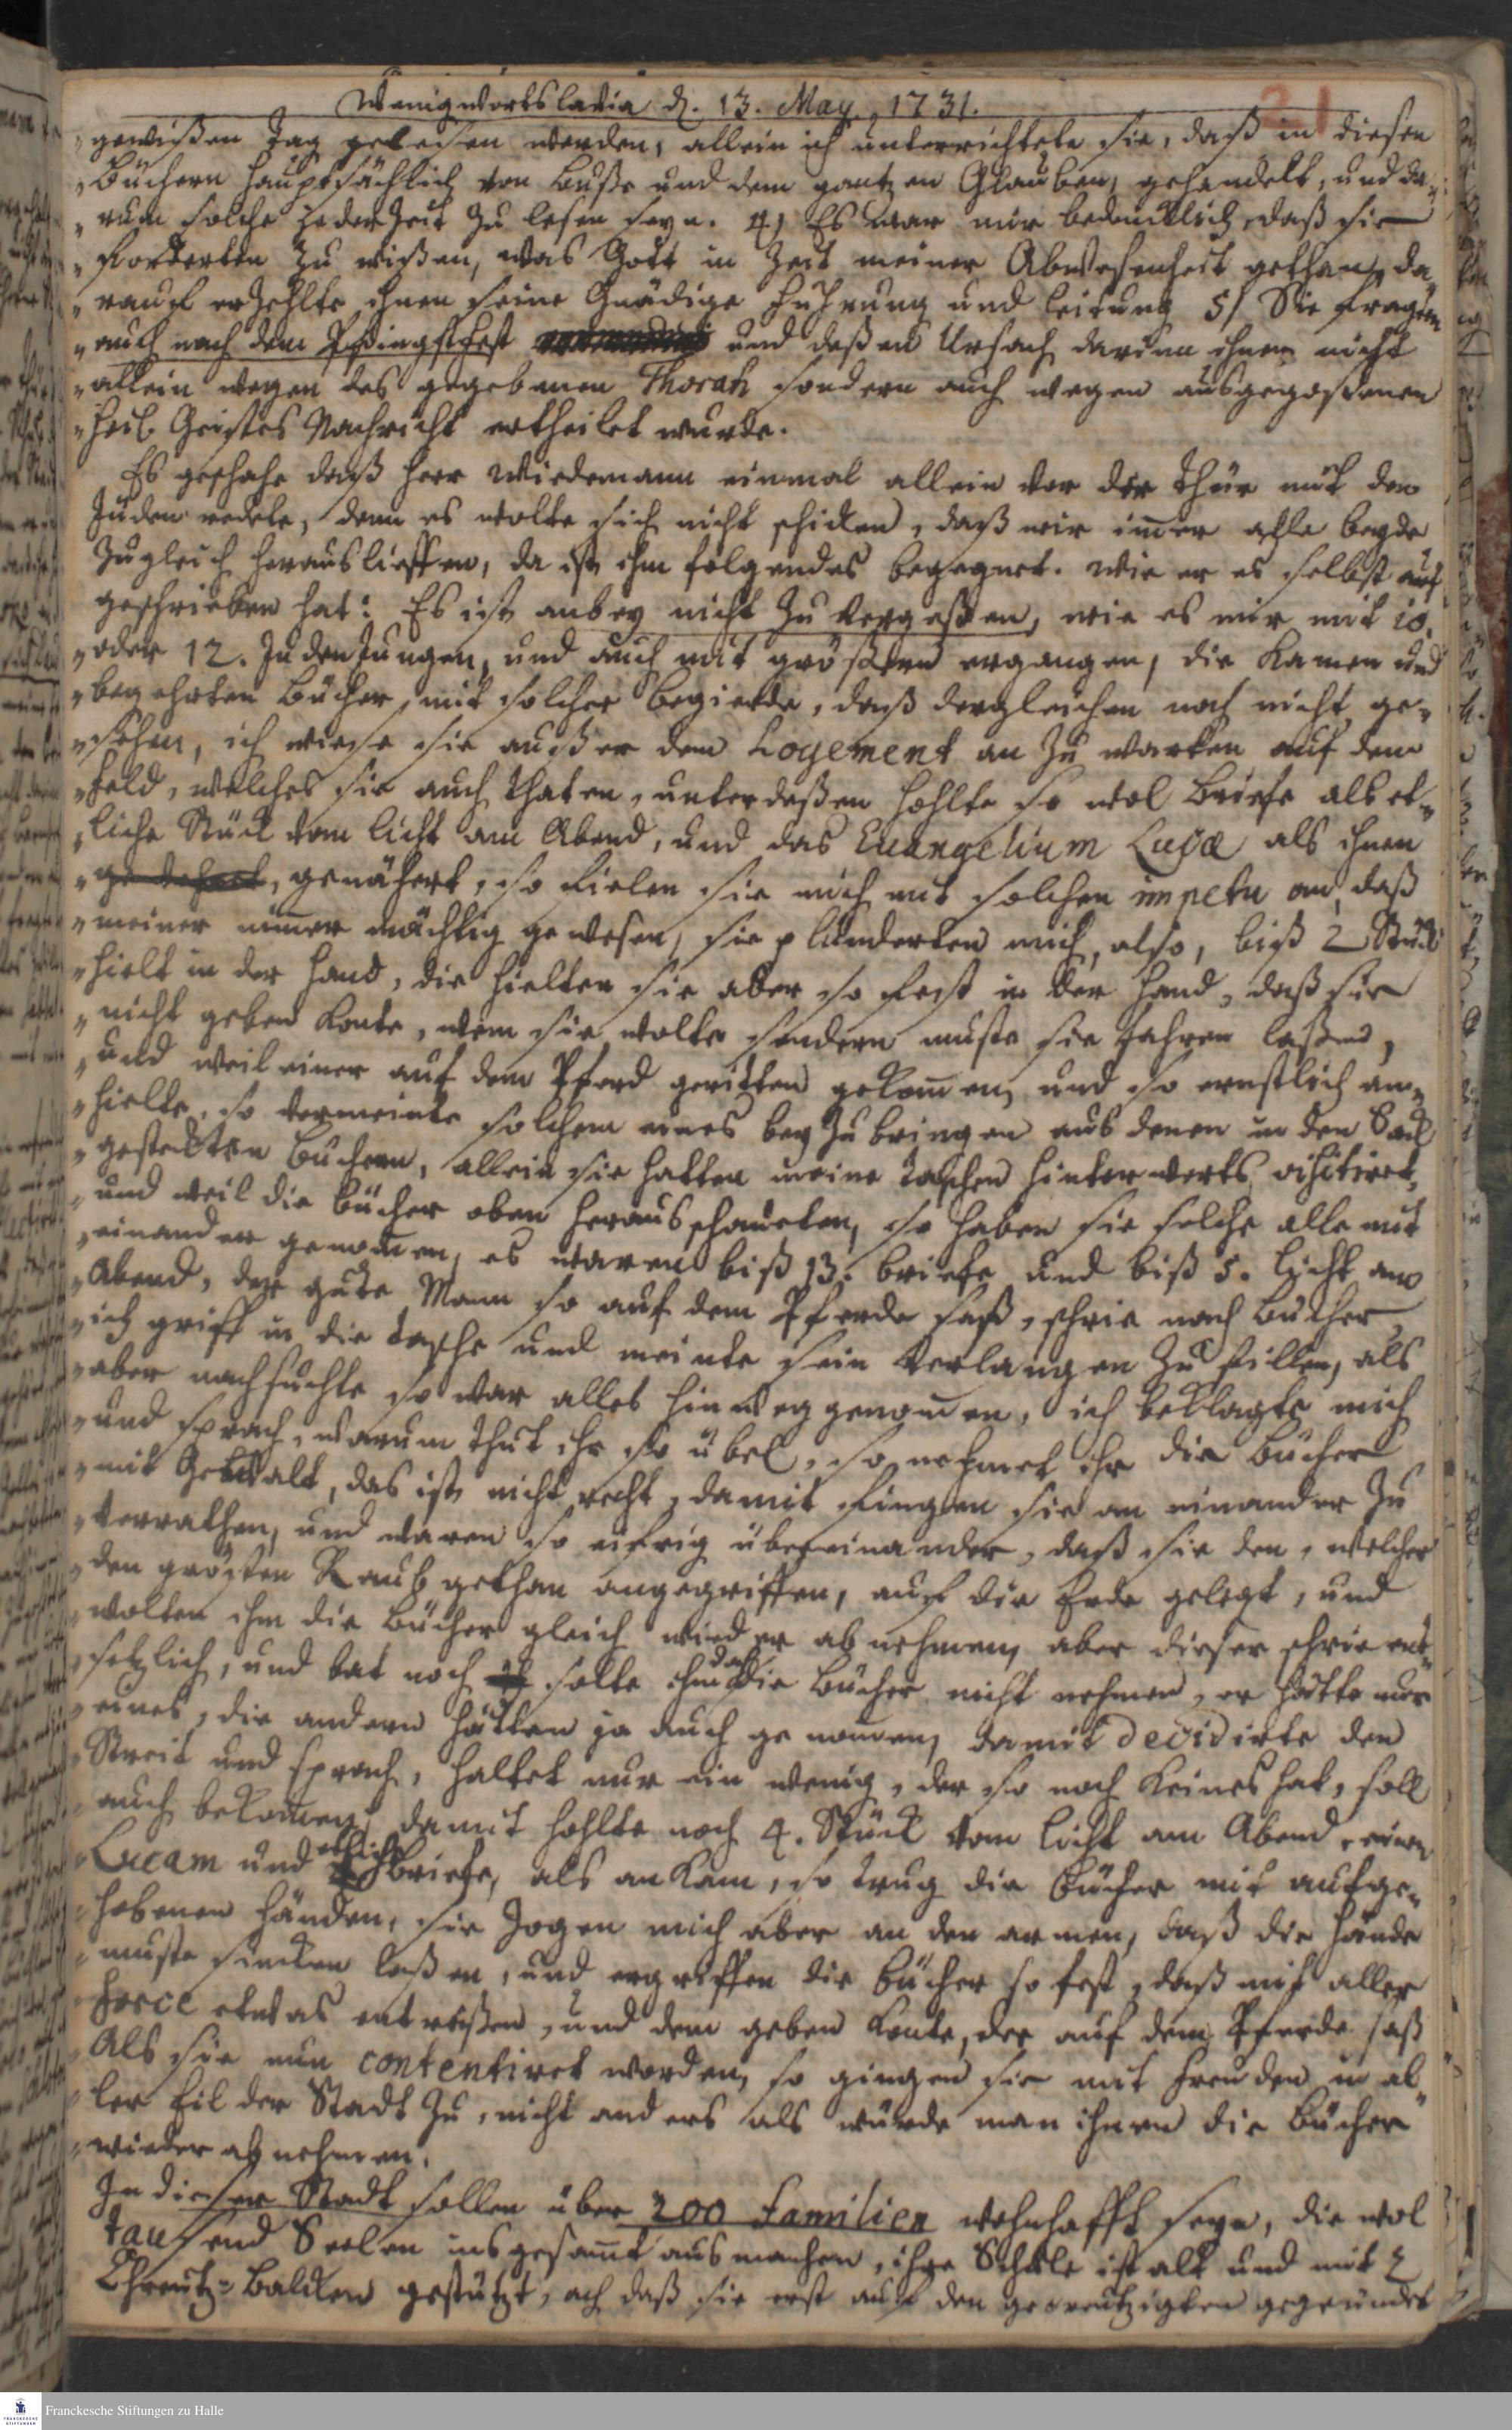 Wenigwortslavia d. 13. May, 1731.
21
„gewißen Tag gelesen werden, allein ich unterrichtete sie, daß in diesen
„Büchern hauptsächlich von Buße und dem gantzen Glauben, gehandelt, und da„
„rum solche jederzeit zu lesen seyn. 4) Es war mir bedencklich, daß sie
„forderten zu wißen, was Gott in Zeit meiner Abwesenheit gethan, da„
„rauf erzehlte ihnen seine Gnädige Führung und Leitung 5) Sie fragten
„auch nach dem Pfingstfest und deßen Ursach, darinn ihnen nicht
„allein wegen des gegebenen Thorah sondern auch wegen ausgegoßenen
„Heil. Geistes Nachricht ertheilet wurde.
Es geschahe daß Herr Wiedemann einmal allein vor der Thür mit den
Juden redete, denn es wolte sich nicht schicken, daß wir im̅er alle beyde
zugleich herausliessen, da ist ihm folgendes begegnet. wie er es selbst auf
geschrieben hat: Es ist anbey nicht zu vergeßen, wie es mir mit 10.
„oder 12. Juden Jungen, und auch mit größern ergangen, die kamen und
„begehrten Bücher, mit solcher Begierde, daß dergleichen noch nicht ge„
„sehen, ich wiese sie außer dem Logement an zu warten auf dem
„Feld, welches sie auch thaten, unterdeßen hohlte so wol Briefe als et„
„liche Stück vom Licht am Abend, und das Euangelium Lucæ als ihnen
„genähert, so fielen sie mich mit solchen impetu an, daß
„meiner nim̅er mächtig gewesen, sie plünderten mich, also, biß 2 Stück
„hielt in der Hand, die hielten sie aber so fest in der Hand, daß sie
„nicht geben konte, wem sie wolte sondern muste sie fahren laßen,
„und weil einer auf dem Pferd geritten gekom̅en, und so ernstlich an„
„hielte, so vermeinte solchem eines bey zu bringen aus denen in den Sack
„gesteckten Büchern, allein sie hatten meine Taschen hinterwerts visitiret,
„und weil die Bücher oben heraus schaueten, so haben sie solche alle mit
„einander genom̅en, es waren biß 13. briefe und biß 5. Licht am
„Abend, der gute Mann so auf dem Pferde saß, schrie nach Bücher,
„ich griff in die Tasche und meinte sein Verlangen zu stillen, als
„aber nachsuchte so war alles hinweggenom̅en, ich beklagte mich
„und sprach, warum thut ihr so übel, so nehmet ihr die Bücher
„mit Gewalt, das ist nicht recht, damit fingen sie an einander zu
„verrathen, und waren so eifrig übereinander, daß sie den, welcher
„den grösten Raub gethan angegriffen, auf die Erde gelegt, und
„wolten ihm die Bücher gleich wieder ab nehmen, aber dieser schrie ent„
„setzlich, und bat noch solte ihm doch die Bücher nicht nehmen, er hätte nur
„eines, die andern hätten ja auch genom̅en, damit decidirte den
„Streit und sprach, haltet nur ein wenig, der so noch keines hat, soll
„auch bekom̅en, damit hohlte noch 4. Stück vom Licht am Abend, einen
„Lucam und etliche Briefe, als an kam, so trug die Bücher mit aufge„
„hobenen Händen, sie zogen mich aber an den armen, daß die Hände
„muste sincken laßen, und ergriffen die Bücher so fest, daß mit aller
„force etwas entreißen, und dem geben konte, der auf dem Pferde saß
„Als sie nun contentiret worden, so gingen sie mit Freuden in al„
„ler Eil der Stadt zu, nicht anders als würde man ihnen die Bücher
„wieder ab nehmen.
In dieser Stadt sollen über 200 Familien wohnhafft seyn, die wol
tausend Seelen insgesam̅t ausmachen, ihre Schule ist alt und mit 2
Chreutz-Balcken gestützt, ach daß sie erst auf den gecreutzigten gegründet
Franckesche Stiftungen zu Halle